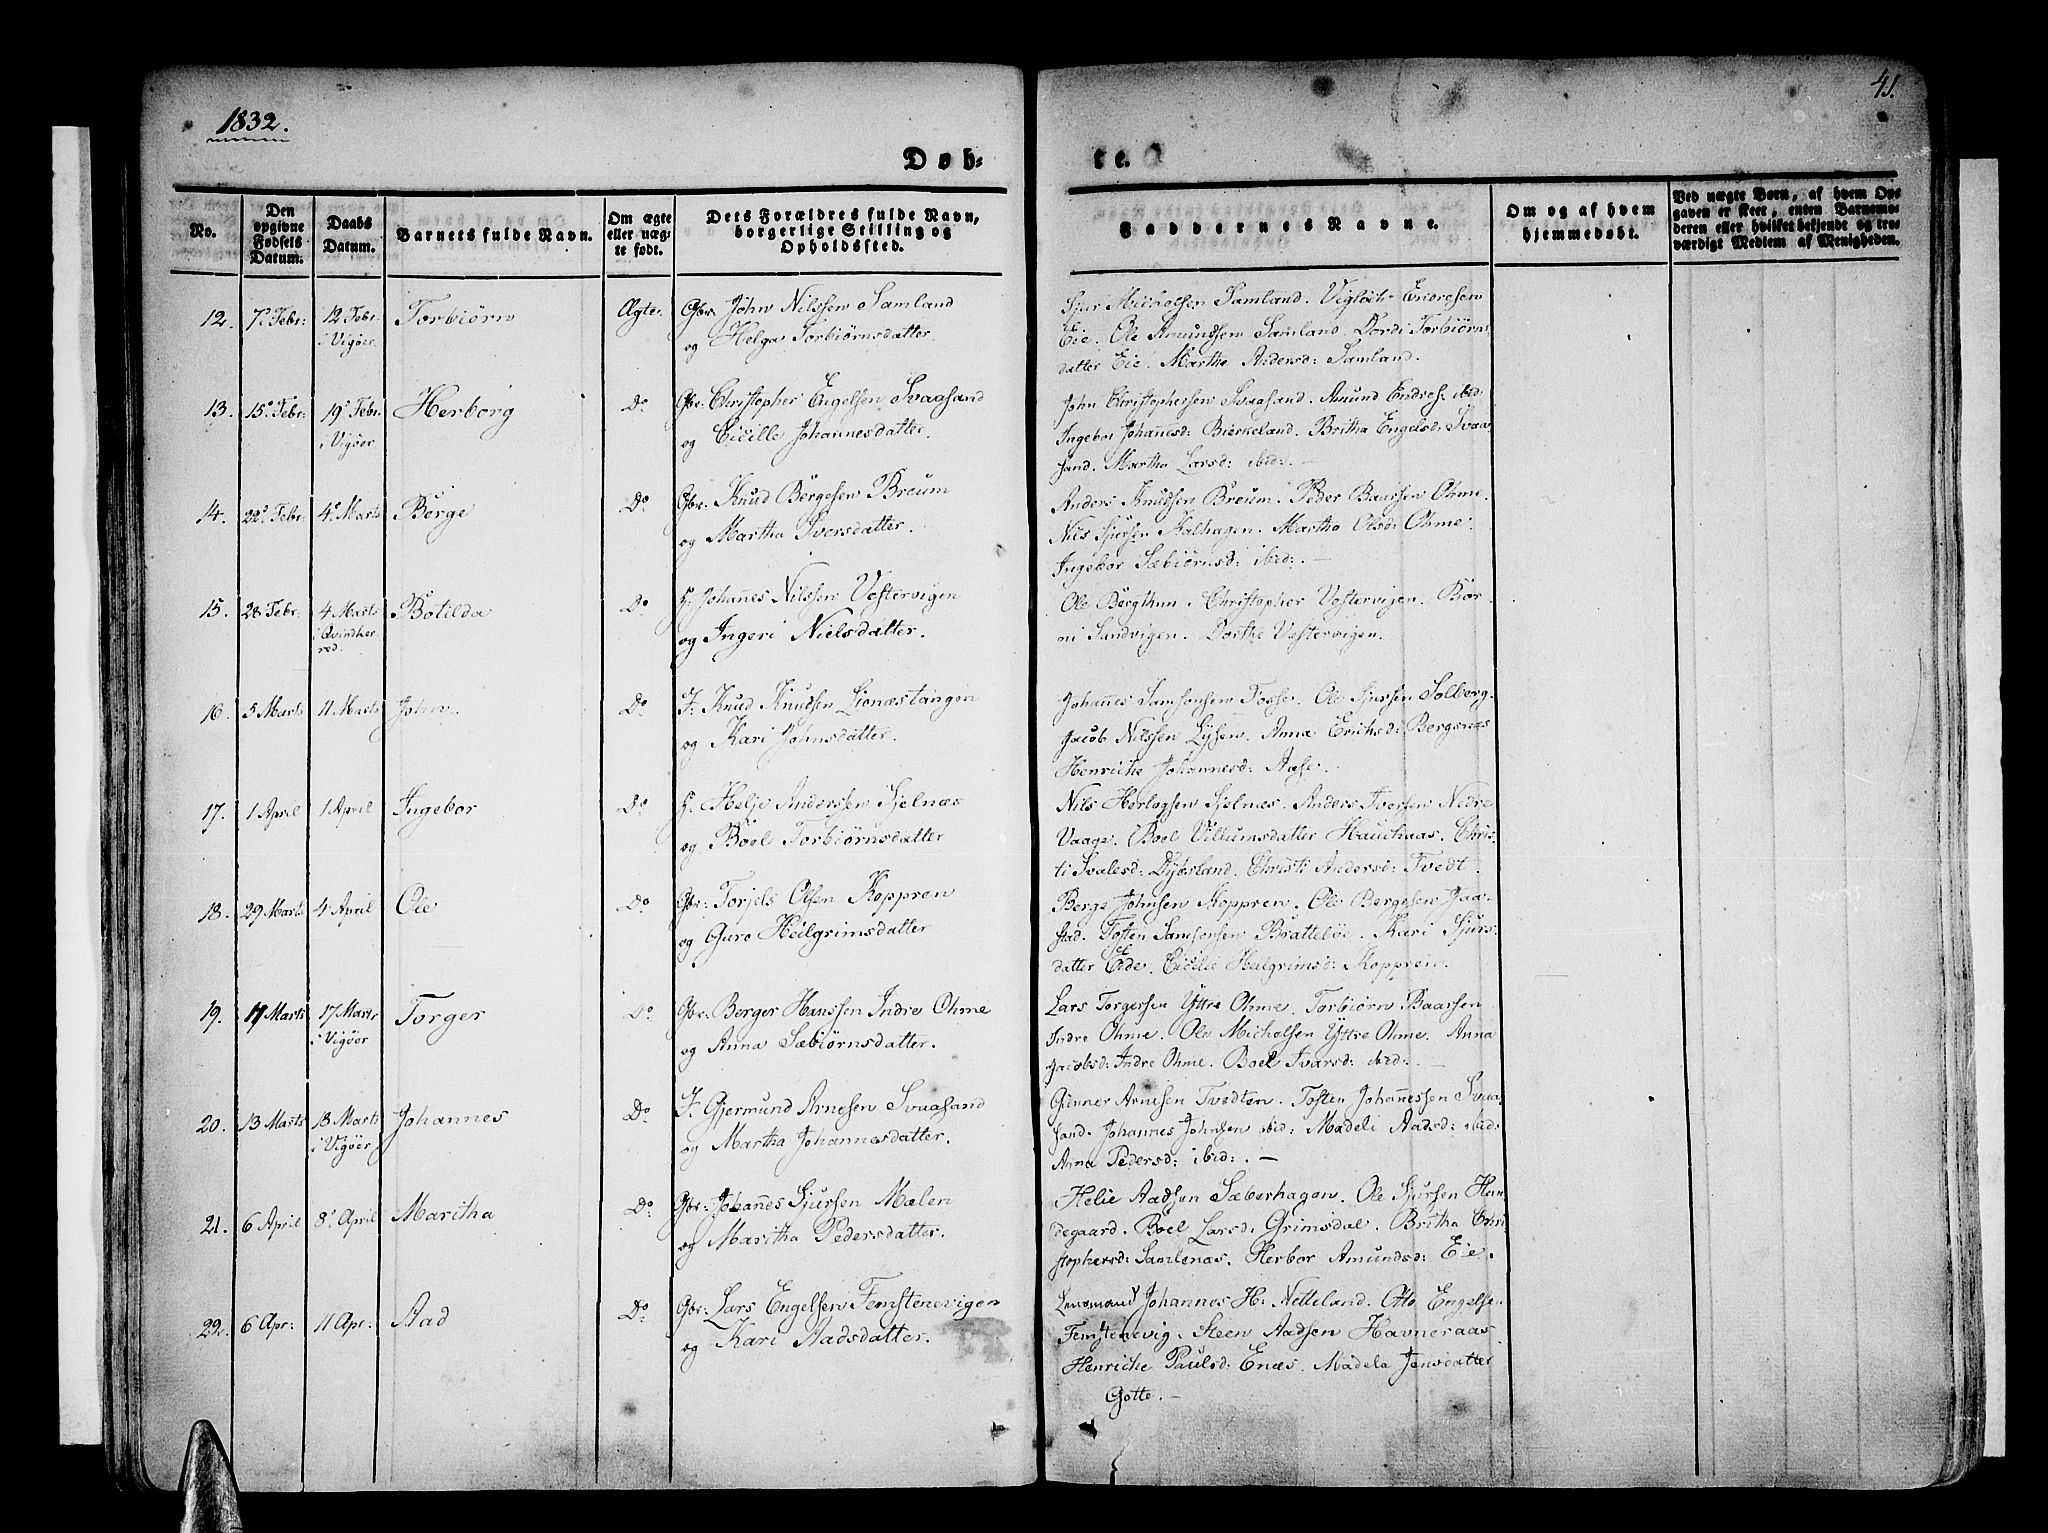 1832.
41.
Døb-
te.
No.
Den
opgivne
Fødsels
Datum.
Daabs
Datum.
Barnets fulde Navn.
Om ægte
eller uæg-
te født.
Dets Forældres fulde Navn,
borgerlige Stilling og
Opholdssted.
Faddernes Navne.
Om og af hvem
hjemmedøbt.
Ved uægte Børn, af hvem Op-
gaven er skeet, enten Barnemo-
deren eller hvilket bekjendt og tro-
værdigt Medlem af Menigheden.
12. 7. Febr: 12 Febr. Torbiörn Ægte. Gbr. John Nilssen Samland
i Vigöer. og Helga Torbiörnsdatter.
Sjur Michelsen Samland. Endresen
Eie. Ole Amundsen Samland. Dordi Torbiörns
datter Eie. Martha Andersd: Samland.
13. 15. Febr: 19. Febr. Herborg Do Gbr: Christopher Engelsen Svaasand
i Vigöer. og Cicille Johannesdatter.
John Christophersen Svaasand. Amund Endres: ibid:
Ingebor Johanesd: Bierkeland. Britha Engelsd: Svaa
sand. Martha Larsd: ibid:. —
14. 22. Febr: 4. Marts Börge Do Gbr: Knud Börgesen Breum
og Martha Iversdatter.
Anders Knudsen Breum. Peder Baarsen Ohme.
Nils Sjursen Kalhagen. Martha Olsd: Ohme.
Ingebor Sæbiörnsd: ibid:. —
15. 28 Febr: 4 Marts Botilda Do H: Johanes Nilssen Vestervigen
i Qvindher
red. og Ingeri Nielsdatter.
Ole Bergthun. Christopher Vestervigen. Bör
ni Sandvigen. Dorthe Vestervigen.
16. 5 Marts 11 Marts John. Do I: Knud Knudsen Lionæstangen
og Kari Johnsdatter.
Johannes Samsonsen Fosse. Ole Sjursen Solberg.
Jacob Nilssen Lysen. Anna Erichsd: Bergsnæs
Henriche Johannesd: Aase.
17. 1 April 1 April Ingebor Do H: Helje Anderssen Sjelnæs
og Böel Torbiörnsdatter
Nils Herlogsen Sjelnæs. Anders Iversen Nedre
Vaage. Boel Villumsdatter Hauchaas. Chris-
ti Svalesd: Dybsland. Christi Andersd: Tvedt.
18. 29 Marts 4 April Ole Do Gbr: Torjels Olsen Koppren
og Guro Heilgrimsdatter
Berge Johnsen Koppren. Ole Bergesen Jaa-
stad. Tosten Samsonsen Bratteböe. Kari Sjurs-
datter Eide. Cicilie Heilgrimsd: Koppren.
19. 11 Marts 17 Marts Torger Do Gbr: Berger Hanssen Indre Ohme
i Vigöer og Anna Sæbiörnsdatter.
Lars Torgersen Yttre Ohme. Torbiörn Baarsen
Indre Ohme. Ole Michelsen Yttre Ohme. Anna
Jacobsd: Indre Ohme. Boel Ivarsd: ibid:. —
20. 13 Marts 18 Marts Johannes Do I: Gjermund Arnesen Svaasand
i Vigöer. og Martha Johannesdatter.
Gunner Arnesen Tvedten. Tosten Johannessen Svaa
sand. Johannes Johnsen ibid: Madeli Aadsd: ibid:
Anna Pedersd: ibid:. —
21. 6 April 8. April Maritha Do Gbr: Johanes Sjursen Mælen
og Maritha Pedersdatter.
Helie Aadsen Sæberhagen. Ole Sjursen Hen
degaard. Boel Larsd: Grimsdal. Britha Chri
stophersd: Samlenæs. Herbor Amundsd: Eie.
22. 6 Apr: 11 Apr: Aad Do Gbr: Lars Engelsen Femstenevigen
og Kari Aadsdatter.
Lensmand Johannes H: Netteland. Otto Engelsen
Femstenevig. Steen Aadsen Havneraas.
Henriche Paulsd: Enæs. Madela Jensdatter
Gotte. —